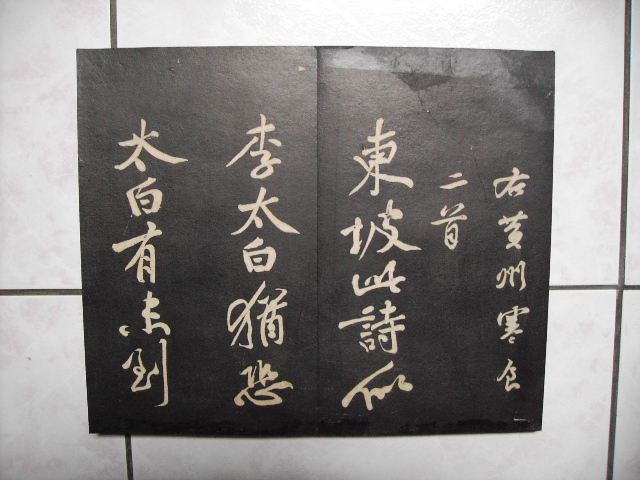 右黃州寒食
二首
東坡此詩似
李太白猶恐
太白有未到